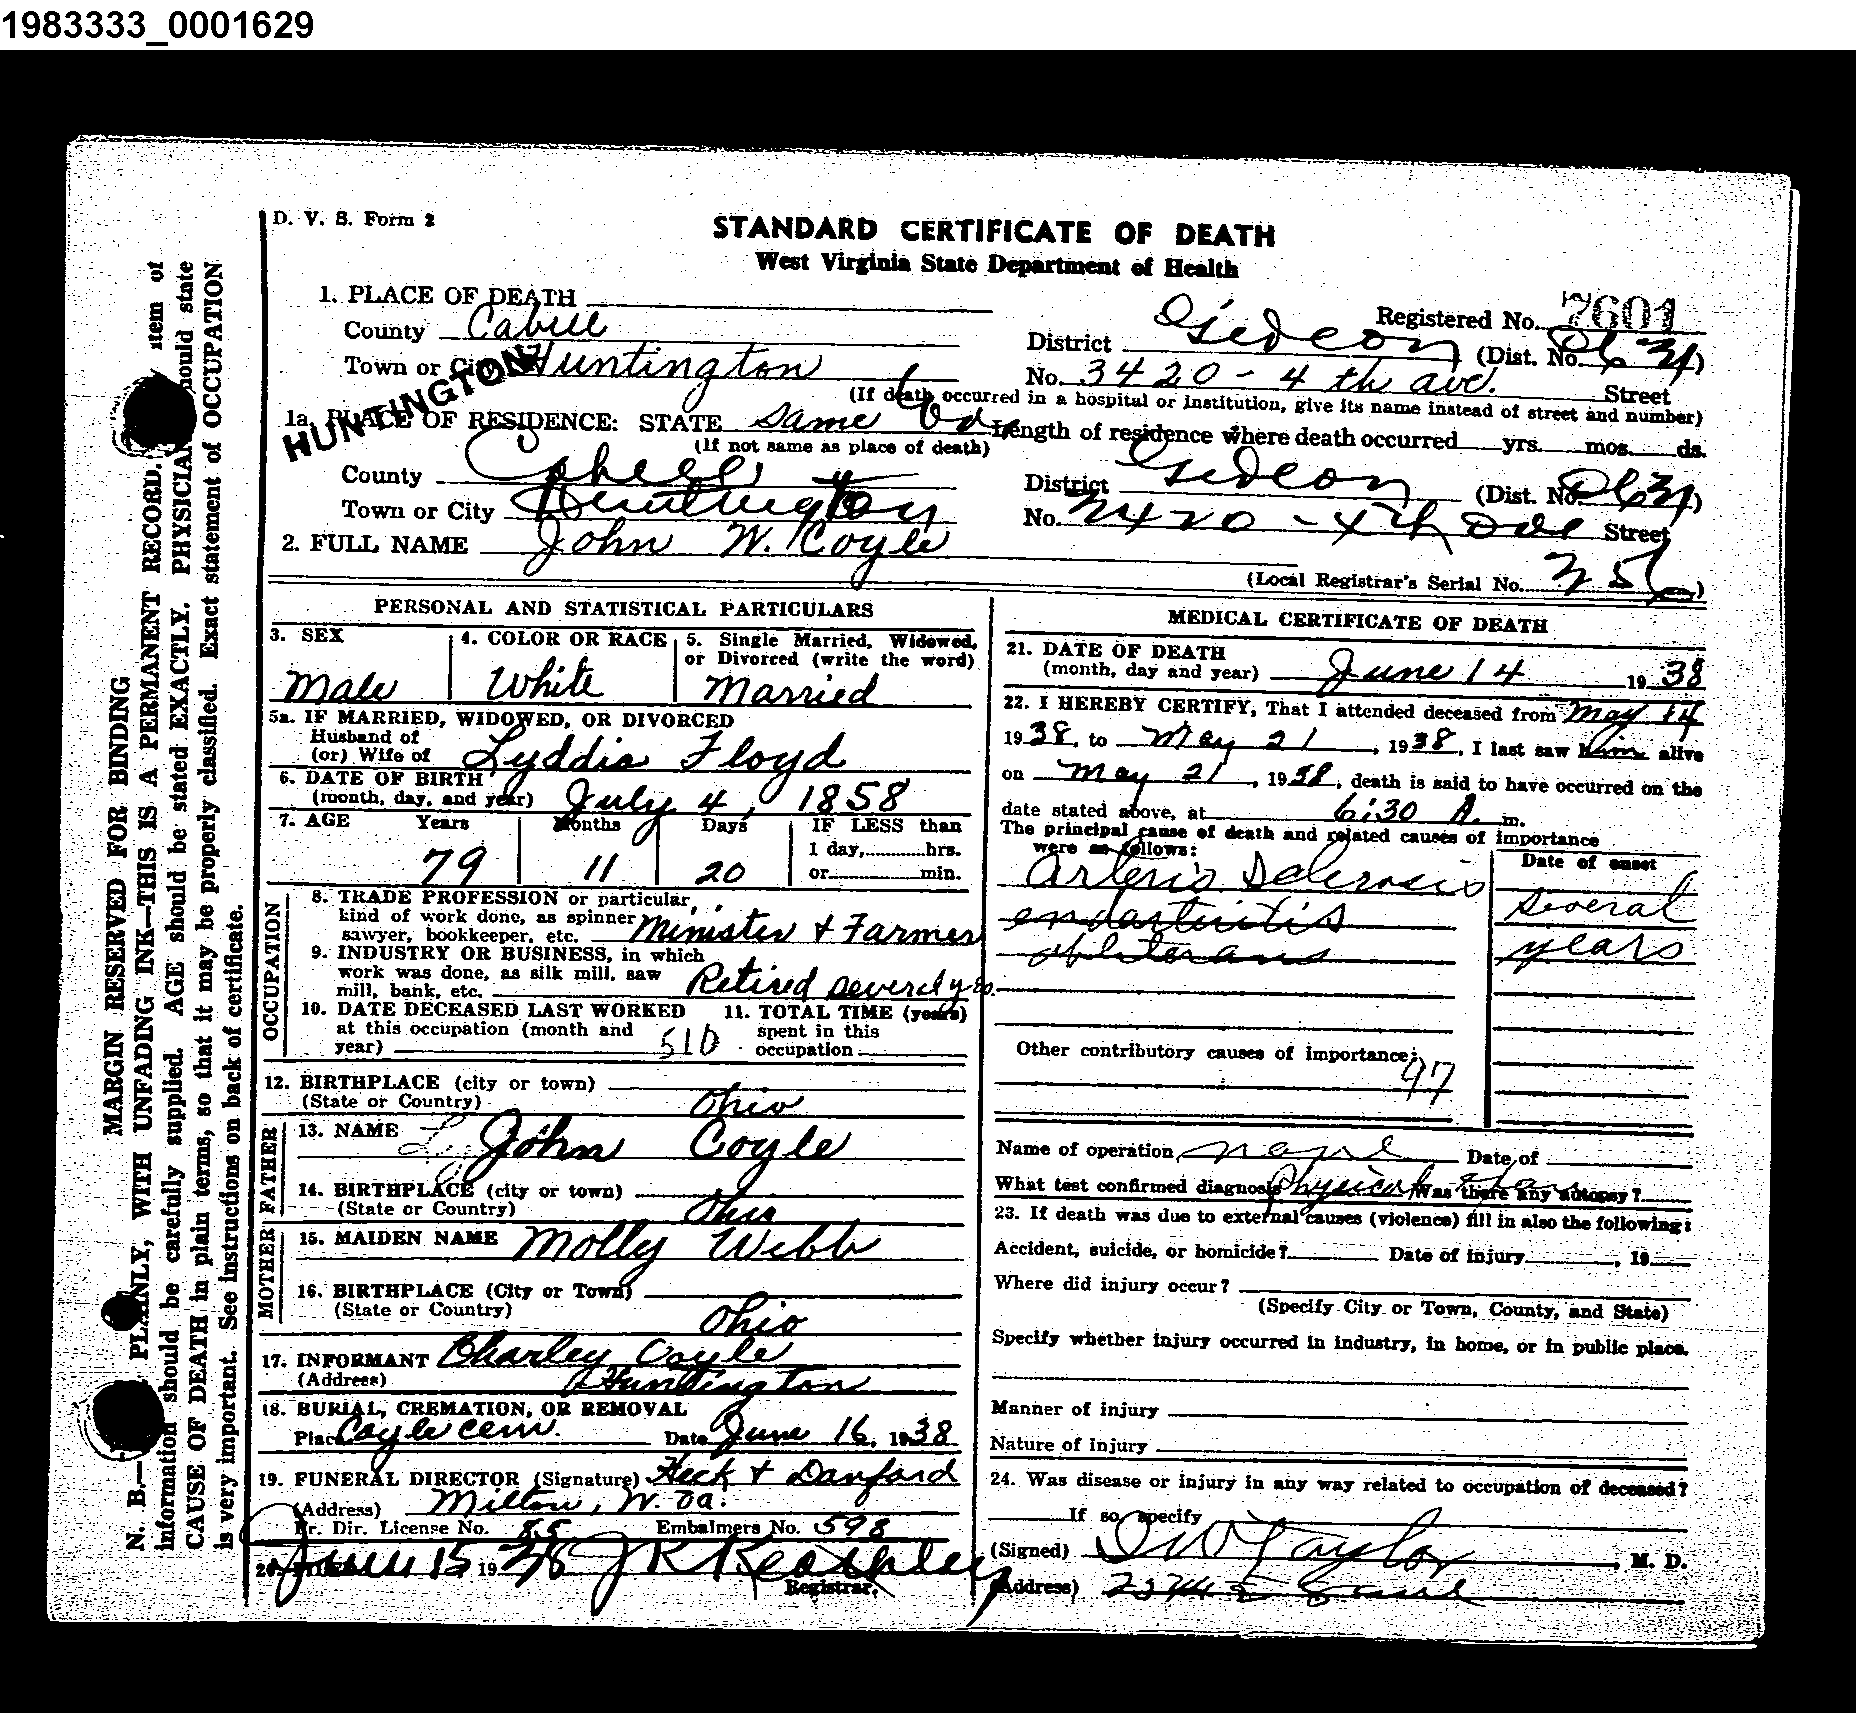 1983333_0001629
D. V. S. Form 2
STANDARD CERTIFICATE OF DEATH
West Virginia State Department of Health
1. PLACE OF DEATH
Registered No. 7601
County Cabell
District Gideon (Dist. No. 0631)
Town or City Huntington
No. 3420 - 4 th ave. Street
(If death occurred in a hospital or institution, give its name instead of street and number)
HUNTINGTON
1a. PLACE OF RESIDENCE: STATE same
(If not same as place of death)
Length of residence where death occurred yrs. mos. ds.
County Cabell
District Gideon (Dist. No. 0631)
Town or City Huntington
No. 3420 - 4th Ave Street
2. FULL NAME John W. Coyle
(Local Registrar's Serial No. )
PERSONAL AND STATISTICAL PARTICULARS
3. SEX
Male
4. COLOR OR RACE
White
5. Single Married, Widowed, or Divorced (write the word)
Married
5a. IF MARRIED, WIDOWED, OR DIVORCED
Husband of
(or) Wife of Lyddia Floyd
6. DATE OF BIRTH
(month, day, and year) July 4, 1858
7. AGE Years Months Days IF LESS than
1 day, hrs.
79 11 20 or min.
OCCUPATION
8. TRADE PROFESSION or particular,
kind of work done, as spinner
sawyer, bookkeeper, etc. Minister + Farmer
9. INDUSTRY OR BUSINESS, in which
work was done, as silk mill, saw
mill, bank, etc. Retired severely yrs.
10. DATE DECEASED LAST WORKED
at this occupation (month and
year) 510
11. TOTAL TIME (years)
spent in this
occupation
12. BIRTHPLACE (city or town)
(State or Country) Ohio
FATHER
13. NAME John Coyle
14. BIRTHPLACE (city or town)
(State or Country) Ohio
MOTHER
15. MAIDEN NAME Molly Webb
16. BIRTHPLACE (City or Town)
(State or Country) Ohio
17. INFORMANT Charley Coyle
(Address) Huntington
18. BURIAL, CREMATION, OR REMOVAL
Place Coyle cem. Date June 16, 1938
19. FUNERAL DIRECTOR (Signature) Heck + Danford
(Address) Milton, W. Va.
Fr. Dir. License No. 85 Embalmers No. 598
20. June 15 1938 J R Keathley
Registrar.
MEDICAL CERTIFICATE OF DEATH
21. DATE OF DEATH
(month, day and year) June 14 1938
22. I HEREBY CERTIFY, That I attended deceased from May 14
1938, to May 21, 1938, I last saw him alive
on May 21, 1938, death is said to have occurred on the
date stated above, at 6:30 A. m.
The principal cause of death and related causes of importance
were as follows:
Date of onset
Arterio Sclerosis
endarteritis
obliterans
several
years
Other contributory causes of importance:
97
Name of operation none Date of
What test confirmed diagnosis Physical Was there any autopsy?
23. If death was due to external causes (violence) fill in also the following:
Accident, suicide, or homicide? Date of injury , 19
Where did injury occur?
(Specify City or Town, County, and State)
Specify whether injury occurred in industry, in home, or in public place.
Manner of injury
Nature of Injury
24. Was disease or injury in any way related to occupation of deceased?
If so, specify
(Signed) Taylor, M. D.
(Address)
MARGIN RESERVED FOR BINDING
N. B.— PLAINLY, WITH UNFADING INK—THIS IS A PERMANENT RECORD. item of
information should be carefully supplied. AGE should be stated EXACTLY. PHYSICIAN should state
CAUSE OF DEATH in plain terms, so that it may be properly classified. Exact statement of OCCUPATION
is very important. See instructions on back of certificate.